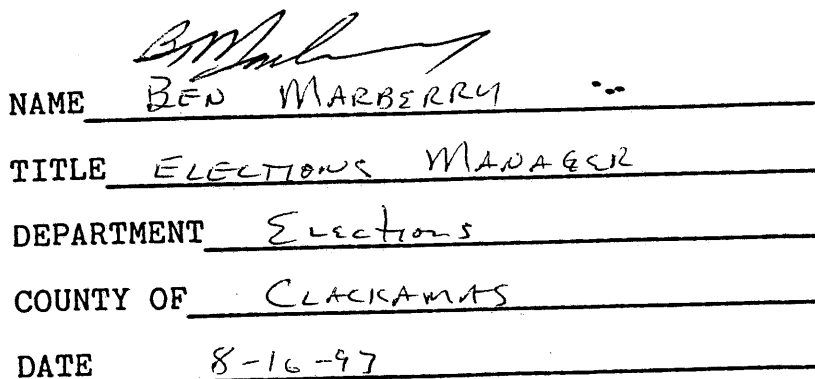 NAME BEN MARBERRY
TITLE ELECTIONS MANAGER
DEPARTMENT Elections
COUNTY OF CLACKAMAS
DATE 8-16-97